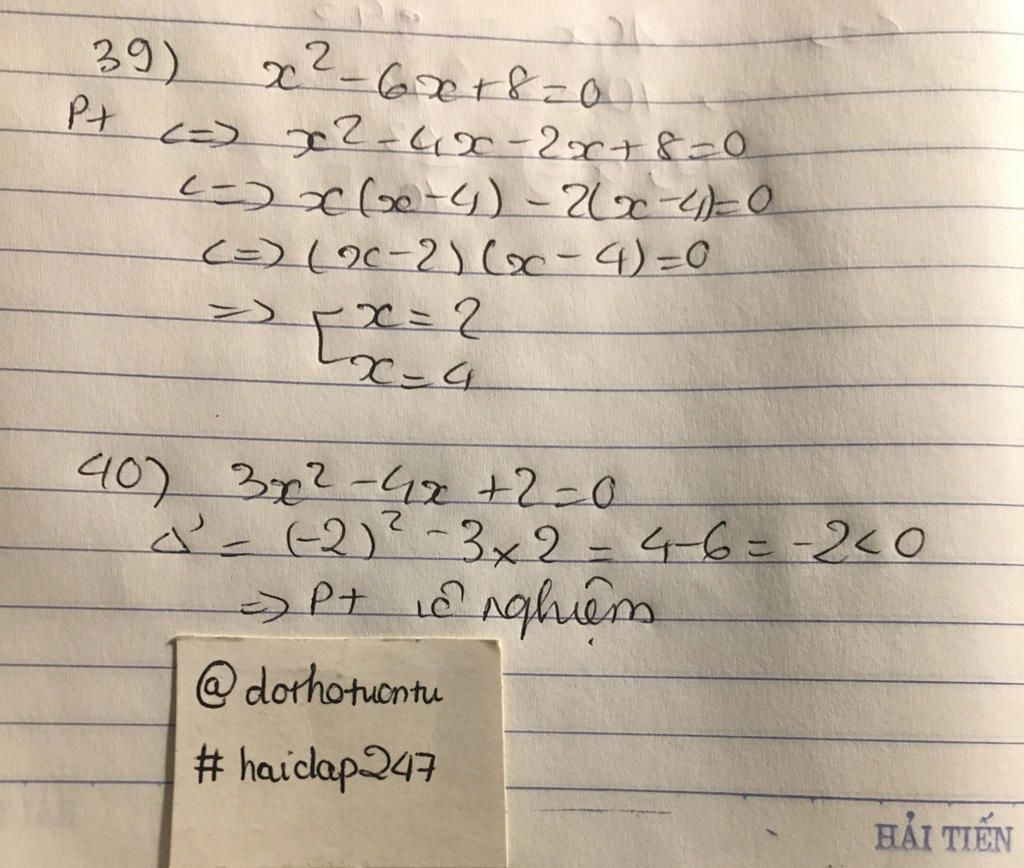 39) x² - 6x + 8 = 0
Pt <=> x² - 4x - 2x + 8 = 0
<=> x(x - 4) - 2(x - 4) = 0
<=> (x - 2)(x - 4) = 0
=> [ x = 2
x = 4
40) 3x² - 4x + 2 = 0
Δ' = (-2)² - 3 x 2 = 4 - 6 = -2 < 0
=> Pt vô nghiệm
@dothotuontu
# haidap247
HẢI TIẾN